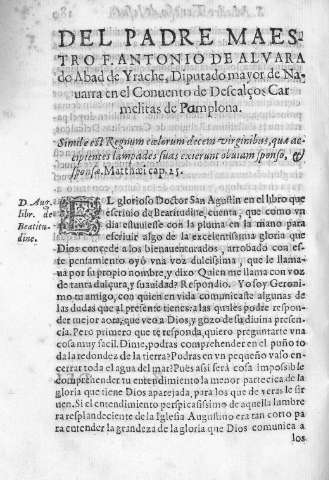 DEL PADRE MAES-
TRO F. ANTONIO DE ALVARA
do Abad de Yrache, Diputado mayor de Na-
uarra en el Conuento de Descalços Car
melitas de Pamplona.
Simile est Regnum cœlorum decem virginibus, quæ ac-
cipientes lampades suas exierunt obuiam sponso, &
sponsæ. Matthæi cap. 25.
D. Aug.
libr. de
Beatitu-
dine.
EL glorioso Doctor San Agustin en el libro que
escriuio de Beatitudine, cuenta, que como vn
dia estuuiesse con la pluma en la mano para
escriuir algo de la excelentissima gloria que
Dios concede a los bienauenturados, arrobado con es-
te pensamiento oyò vna voz dulcissima, que le llama-
ua por su propio nombre, y dixo Quien me llama con voz
de tanta dulçura, y suauidad? Respondio. Yo soy Geroni-
mo tu amigo, con quien en vida comunicaste algunas de
las dudas que al presente tienes: a las quales podre respon-
der mejor aora, que veo a Dios, y gozo de su diuina presen-
cia. Pero primero que te responda, quiero preguntarte vna
cosa muy facil. Dime, podras comprehender en el puño to-
da la redondez de la tierra? Podras en vn pequeño vaso en-
cerrar toda el agua del mar? Pues assi serà cosa impossible
comprehender tu entendimiento la menor partecica de la
gloria que tiene Dios aparejada, para los que de veras le sir
uen. Si el entendimiento perspicacissimo de aquella lumbre
ra resplandeciente de la Iglesia Augustino era tan corto pa
ra entender la grandeza de la gloria que Dios comunica a
los